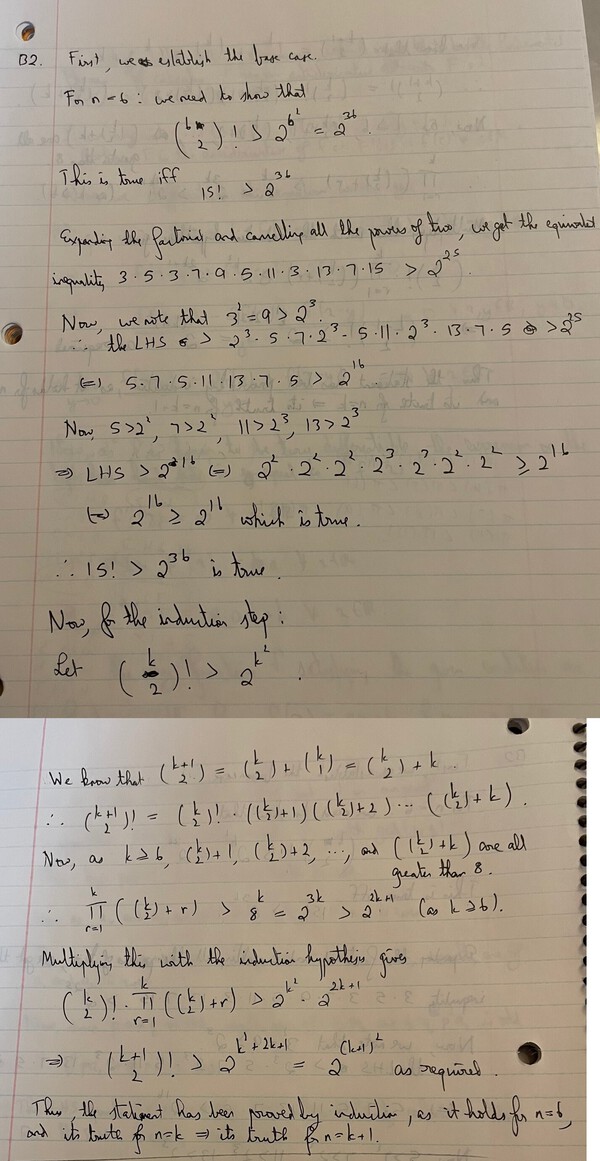 B2. First, we establish the base case.
For n = 6 : we need to show that
(6 2)! > 2^6^2 = 2^36.
This is true iff
15! > 2^36
Expanding the factorial and cancelling all the powers of two, we get the equivalent
inequality 3·5·3·7·9·5·11·3·13·7·15 > 2^25.
Now, we note that 3^2 = 9 > 2^3.
∴ the LHS > 2^3 · 5 · 7 · 2^3 · 5 · 11 · 2^3 · 13 · 7 · 5 > 2^25
⇔ 5·7·5·11·13·7·5 > 2^16.
Now, 5 > 2^2, 7 > 2^2, 11 > 2^3, 13 > 2^3
⇒ LHS > 2^16 ⇔ 2^2 · 2^2 · 2^2 · 2^3 · 2^3 · 2^2 · 2^2 ≥ 2^16
⇔ 2^16 ≥ 2^16 which is true.
∴ 15! > 2^36 is true.
Now, for the induction step:
Let (k 2)! > 2^k^2.
We know that (k+1 2) = (k 2) + (k 1) = (k 2) + k.
∴ (k+1 2)! = (k 2)! · ((k 2)+1)((k 2)+2) ... ((k 2)+k).
Now, as k ≥ 6, (k 2)+1, (k 2)+2, ..., and ((k 2)+k) are all
greater than 8.
∴ ∏_{r=1}^{k} ((k 2)+r) > 8^k = 2^3k > 2^2k+1 (as k ≥ 6).
Multiplying this with the induction hypothesis gives
(k 2)! · ∏_{r=1}^{k} ((k 2)+r) > 2^k^2 · 2^2k+1
⇒ (k+1 2)! > 2^k^2+2k+1 = 2^(k+1)^2 as required.
Thus, the statement has been proved by induction, as it holds for n=6,
and its truth for n=k ⇒ its truth for n=k+1.